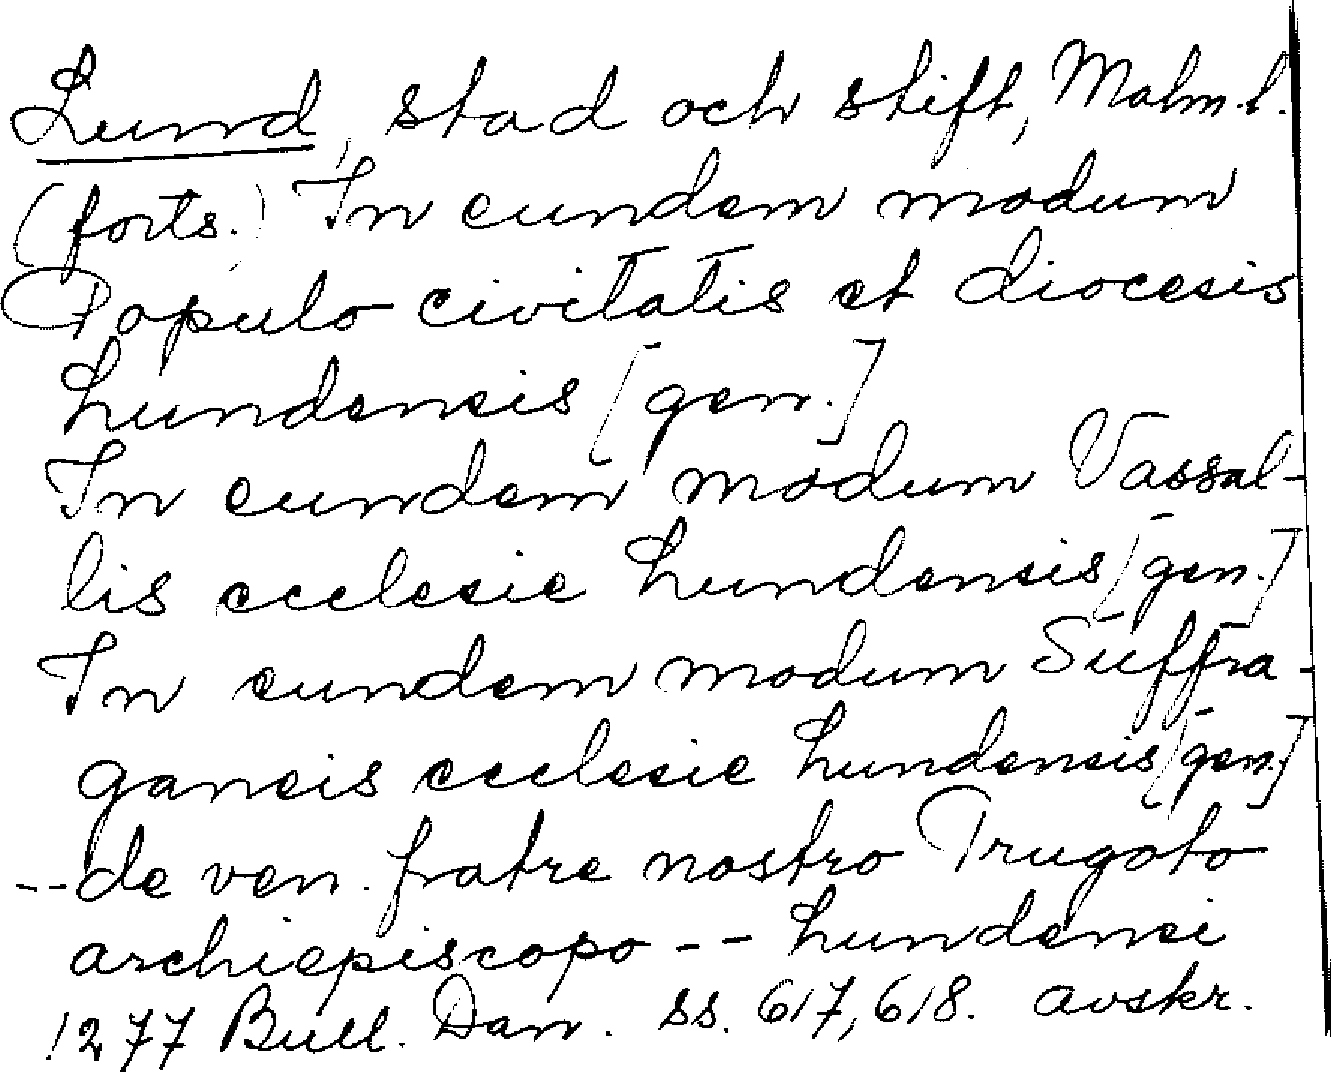 Lund, stad och stift, Malm.l.
(forts.) In eundem modum
Populo civitatis et diocesis
Lundensis [gen.]
In eundem modum Vassal-
lis ecclesie Lundensis [gen.]
In eundem modum Suffra-
ganeis ecclesie Lundensis [gen.]
-- de ven. fratre nostro Trugoto
archiepiscopo -- Lundensi
1277 Bull. Dan. ss. 617, 618. avskr.